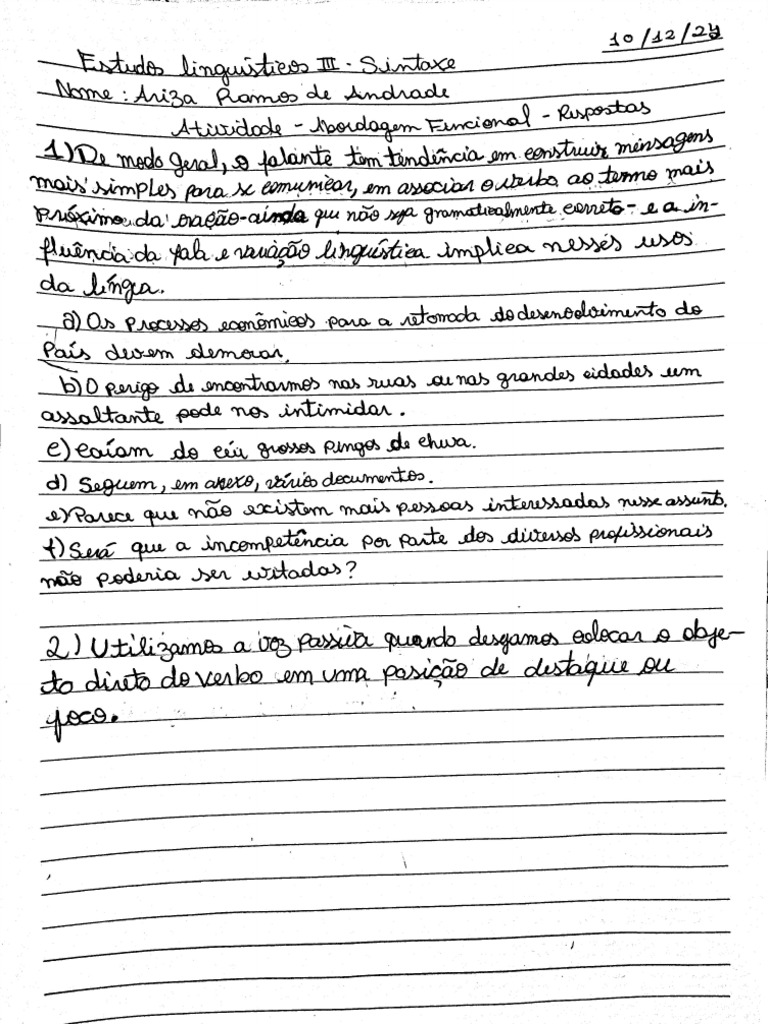 10/12/24
Estudos linguísticos III - Sintaxe
Nome: Ariza Ramos de Andrade
Atividade - Abordagem Funcional - Respostas
1) De modo geral, o falante tem tendência em construir mensagens
mais simples para se comunicar, em associar o verbo ao termo mais
próximo da oração - ainda que não seja gramaticalmente correto - e a in-
fluência da fala e variação linguística implica nesses usos
da língua.
a) Os processos econômicos para a retomada do desenvolvimento do
País devem demorar.
b) O perigo de encontrarmos nas ruas ou nas grandes cidades um
assaltante pode nos intimidar.
c) Caíam do céu grossos pingos de chuva.
d) Seguem, em anexo, vários documentos.
e) Parece que não existem mais pessoas interessadas nesse assunto.
f) Será que a incompetência por parte dos diversos profissionais
não poderia ser evitadas?
2) Utilizamos a voz passiva quando desejamos colocar o obje-
to direto do verbo em uma posição de destaque ou
foco.